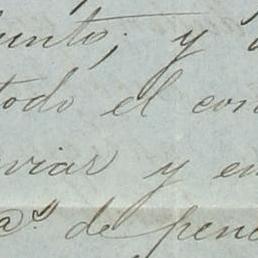 unto; y
todo el con
viar y en
a.s de pen